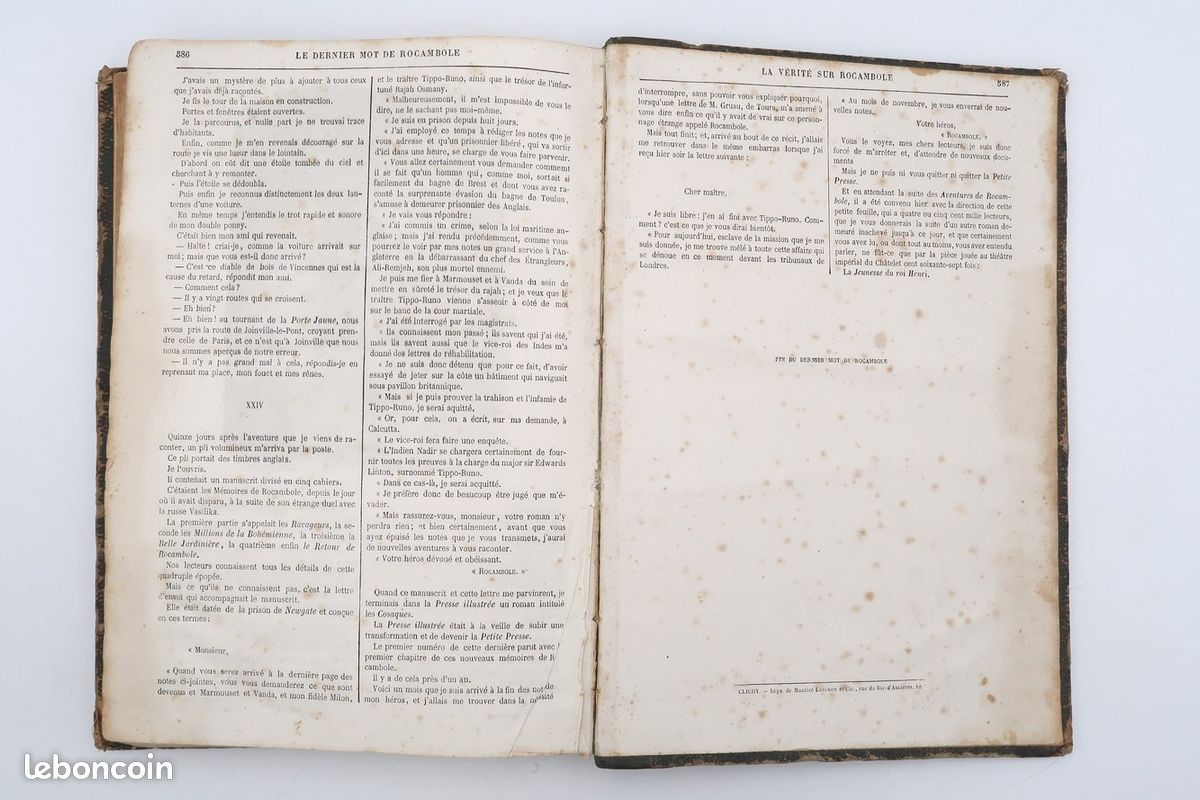 586
LE DERNIER MOT DE ROCAMBOLE
J'avais un mystère de plus à ajouter à tous ceux
que j'avais déjà racontés.
Je fis le tour de la maison en construction.
Portes et fenêtres étaient ouvertes.
Je la parcourus, et nulle part je ne trouvai trace
d'habitants.
Enfin, comme je m'en revenais découragé sur la
route je vis une lueur dans le lointain.
D'abord on eût dit une étoile tombée du ciel et
cherchant à y remonter.
Puis l'étoile se dédoubla.
Puis enfin je reconnus distinctement les deux lan-
ternes d'une voiture.
En même temps j'entendis le trot rapide et sonore
de mon double poney.
C'était bien mon ami qui revenait.
— Halte! criai-je, comme la voiture arrivait sur
moi; mais que vous est-il donc arrivé?
— C'est ce diable de bois de Vincennes qui est la
cause du retard, répondit mon ami.
— Comment cela?
— Il y a vingt routes qui se croisent.
— Eh bien?
— Eh bien! au tournant de la Porte Jaune, nous
avons pris la route de Joinville-le-Pont, croyant pren-
dre celle de Paris, et ce n'est qu'à Joinville que nous
nous sommes aperçus de notre erreur.
— Il n'y a pas grand mal à cela, répondis-je en
reprenant ma place, mon fouet et mes rênes.
XXIV
Quinze jours après l'aventure que je viens de ra-
conter, un pli volumineux m'arriva par la poste.
Ce pli portait des timbres anglais.
Je l'ouvris.
Il contenait un manuscrit divisé en cinq cahiers.
C'étaient les Mémoires de Rocambole, depuis le jour
où il avait disparu, à la suite de son étrange duel avec
la russe Vasilika.
La première partie s'appelait les Ravageurs, la se-
conde les Millions de la Bohémienne, la troisième la
Belle Jardinière, la quatrième enfin le Retour de
Rocambole.
Nos lecteurs connaissent tous les détails de cette
quadruple épopée.
Mais ce qu'ils ne connaissent pas, c'est la lettre
d'envoi qui accompagnait le manuscrit.
Elle était datée de la prison de Newgate et conçue
en ces termes:
« Monsieur,
« Quand vous serez arrivé à la dernière page des
notes ci-jointes, vous vous demanderez ce que sont
devenus et Marmouset et Vanda, et mon fidèle Milon,
et le traître Tippo-Runo, ainsi que le trésor de l'infor-
tuné Rajah Osmany.
« Malheureusement, il m'est impossible de vous le
dire, ne le sachant pas moi-même.
« Je suis en prison depuis huit jours.
« J'ai employé ce temps à rédiger les notes que je
vous adresse et qu'un prisonnier libéré, qui va sortir
d'ici dans une heure, se charge de vous faire parvenir.
« Vous allez certainement vous demander comment
il se fait qu'un homme qui, comme moi, sortait si
facilement du bagne de Brest et dont vous avez ra-
conté la surprenante évasion du bagne de Toulon,
s'amuse à demeurer prisonnier des Anglais.
« Je vais vous répondre:
« J'ai commis un crime, selon la loi maritime an-
glaise; mais j'ai rendu précédemment, comme vous
pourrez le voir par mes notes un grand service à l'An-
gleterre en la débarrassant du chef des Étrangleurs,
Ali-Remjeh, son plus mortel ennemi.
Je puis me fier à Marmouset et à Vanda du soin de
mettre en sûreté le trésor du rajah; et je veux que le
traître Tippo-Runo vienne s'asseoir à côté de moi
sur le banc de la cour martiale.
« J'ai été interrogé par les magistrats.
« Ils connaissent mon passé; ils savent qui j'ai été,
mais ils savent aussi que le vice-roi des Indes m'a
donné des lettres de réhabilitation.
« Je ne suis donc détenu que pour ce fait, d'avoir
essayé de jeter sur la côte un bâtiment qui naviguait
sous pavillon britannique.
« Mais si je puis prouver la trahison et l'infamie de
Tippo-Runo, je serai aquitté.
« Or, pour cela, on a écrit, sur ma demande, à
Calcutta.
« Le vice-roi fera faire une enquête.
« L'Indien Nadir se chargera certainement de four-
nir toutes les preuves à la charge du major sir Edwards
Linton, surnommé Tippo-Runo.
« Dans ce cas-là, je serai acquitté.
« Je préfère donc de beaucoup être jugé que m'é-
vader.
« Mais rassurez-vous, monsieur, votre roman n'y
perdra rien; et bien certainement, avant que vous
ayez épuisé les notes que je vous transmets, j'aurai
de nouvelles aventures à vous raconter.
« Votre héros dévoué et obéissant.
« ROCAMBOLE. »
Quand ce manuscrit et cette lettre me parvinrent, je
terminais dans la Presse illustrée un roman intitulé
les Cosaques.
La Presse illustrée était à la veille de subir une
transformation et de devenir la Petite Presse.
Le premier numéro de cette dernière parut avec
premier chapitre de ces nouveaux mémoires de R
cambole.
Il y a de cela près d'un an.
Voici un mois que je suis arrivé à la fin des not de
mon héros, et j'allais me trouver dans la n ssité
LA VÉRITÉ SUR ROCAMBOLE
587
d'interrompre, sans pouvoir vous expliquer pourquoi,
lorsqu'une lettre de M. Gruau, de Tours, m'a amené à
vous dire enfin ce qu'il y avait de vrai sur ce person-
nage étrange appelé Rocambole.
Mais tout finit; et, arrivé au bout de ce récit, j'allais
me retrouver dans le même embarras lorsque j'ai
reçu hier soir la lettre suivante;
Cher maître.
« Je suis libre: j'en ai fini avec Tippo-Runo. Com-
ment? c'est ce que je vous dirai bientôt.
« Pour aujourd'hui, esclave de la mission que je me
suis donnée, je me trouve mêlé à toute cette affaire qui
se dénoue en ce moment devant les tribunaux de
Londres.
« Au mois de novembre, je vous enverrai de nou-
velles notes.
Votre héros,
« ROCAMBOLE. »
Vous le voyez, mes chers lecteurs, je suis donc
forcé de m'arrêter et, d'attendre de nouveaux docu-
ments
Mais je ne puis ni vous quitter ni quitter la Petite
Presse.
Et en attendant la suite des Aventures de Rocam-
bole, il a été convenu hier avec la direction de cette
petite feuille, qui a quatre ou cinq cent mille lecteurs,
que je vous donnerais la suite d'un autre roman de-
meuré inachevé jusqu'à ce jour, et que certainement
vous avez lu, ou dont tout au moins, vous avez entendu
parler, ne fût-ce que par la pièce jouée au théâtre
impérial du Châtelet cent soixante-sept fois:
La Jeunesse du roi Henri.
FIN DU DERNIER MOT DE ROCAMBOLE
CLICHY. — Impr. de Maurice LOIGNON et Cie, rue du Bac-d'Asnières, 12
leboncoin